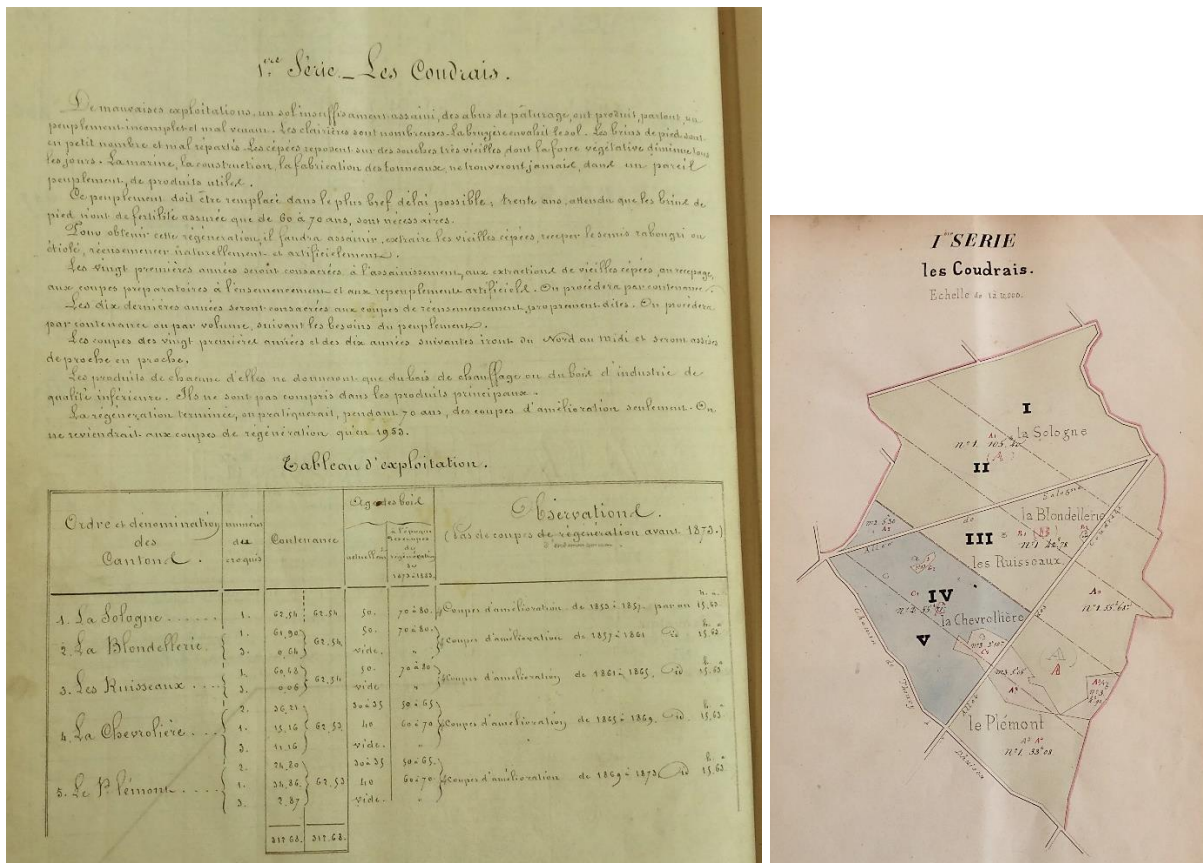 1ère Série _ Les Coudrais.
De mauvaises exploitations, un sol insuffisament assaini, des abus de pâturage, ont produit, partout, un
peuplement incomplet et mal venant. Les clairières sont nombreuses. La bruyère envahit le sol. Les brins de pied sont
en petit nombre et mal répartis. Les cépées reposent sur des souches très vieilles, dont la force végétative diminue tous
les jours. La marine, la construction, la fabrication des tonneaux, ne trouveront jamais, dans un pareil
peuplement, de produits utiles.
Ce peuplement doit être remplacé dans le plus bref délai possible; trente ans, attendu que les brins de
pied n'ont de fertilité assurée que de 60 à 70 ans, sont nécessaires.
Pour obtenir cette régénération, il faudra assainir, extraire les vieilles cépées, recéper le semis rabougri ou
étiolé, réensemencer naturellement et artificiellement.
Les vingt premières années seront consacrées à l'assainissement, aux extractions de vieilles cépées, au recepage,
aux coupes préparatoires à l'ensemencement et aux repeuplements artificiels. On procédera par contenance.
Les dix dernières années seront consacrées aux coupes de réensemencement, proprement dites. On procédera
par contenance ou par volume, suivant les besoins du peuplement.
Les coupes des vingt premières années et des dix années suivantes iront du Nord au midi et seront assises
de proche en proche.
Les produits de chacune d'elles ne donneront que du bois de chauffage ou du bois d'industrie de
qualité inférieure. Ils ne sont pas compris dans les produits principaux.
La régénération terminée, on pratiquerait, pendant 70 ans, des coupes d'amélioration seulement. On
ne reviendrait aux coupes de régénération qu'en 1953.
Tableau d'exploitation.
Ordre et dénomination des Cantons. numéros du croquis Contenance Age des bois actuelle à l'époque des coupes de régénération Observations.
(Pas de coupes de régénération avant 1873.)
1. La Sologne 1. 62,54 62,54 50. 70 à 80. Coupes d'amélioration de 1853 à 1857 par an 15,63
2. La Blondellerie. 1. 61,90 62,54 50. 70 à 80. Coupes d'amélioration de 1857 à 1861 15,63
3. 0,64 vide. "
3. Les Ruisseaux 1. 60,48 62,54 50. 70 à 80 Coupes d'amélioration de 1861 à 1865, 15,63
3. vide "
2. 36,21 30 à 35 50 à 65
4. La Chevrolière. 1. 15,16 62,53 40 60 à 70 Coupes d'amélioration de 1865 à 1869. 15,63
3. 11,16 vide. "
2. 24,80 30 à 35 50 à 65.
5. Le Piémont 1. 34,86 62,53 40 60 à 70 Coupes d'amélioration de 1869 à 1873. 15,63
3. 2,87 vide. "
312,68. 312,68.
Ière SERIE
les Coudrais.
Echelle de
I
la Sologne
n°1.
(A)
II
Sologne
de
la Blondellerie
III
n°1
les Ruisseaux
Allée
IV
la Chevrollière
V
Chemin
de
Allée
des
Coudrais
A
le Piémont
n°1. 33h08